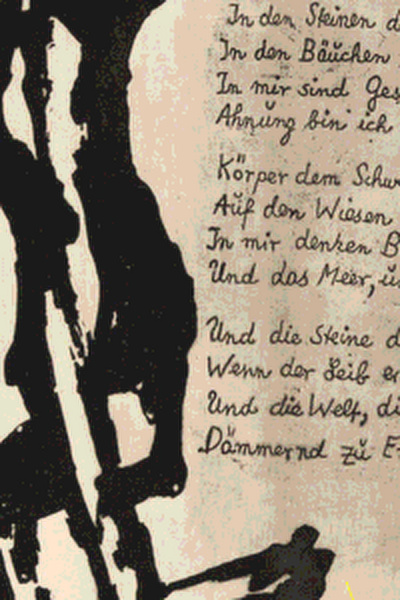 In den Steinen
In den Bäuchen
In mir sind
Ahnung bin ich
Körper dem
Auf den Wiesen
In mir denken
Und das Meer,
Und die Steine
Wenn der Leib
Und die Welt,
Dämmernd zu